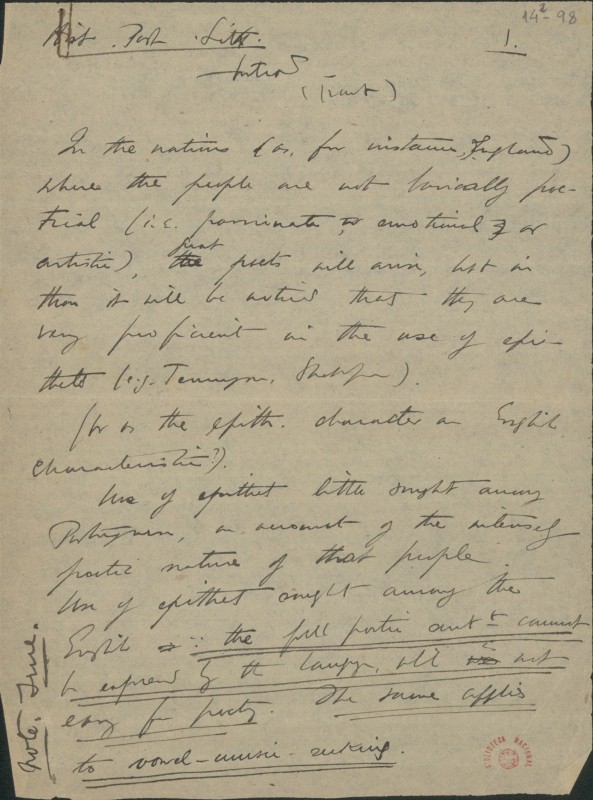 14²-98
Hist. Port. Litt. 1.
Introd
(Trans)
In the nations (as, for instance, England)
where the people are not basically poe-
trical (i.e. passionate, or emotional or
artistic), great poets will arise, but in
them it will be noticed that they are
very proficient in the use of epi-
thets (e.g. Tennyson, Shaksp.).
(Or is the epith. character an English
characteristic?).
Use of epithet little sought among
Portuguese, on account of the intensely
poetic nature of that people.
Use of epithet sought among the
English ∵ the full poetic cannot
be expressed by the language, not
easy for poetry. The same applies
to vowel-music-seeking.
Note. True.
BIBLIOTECA NACIONAL